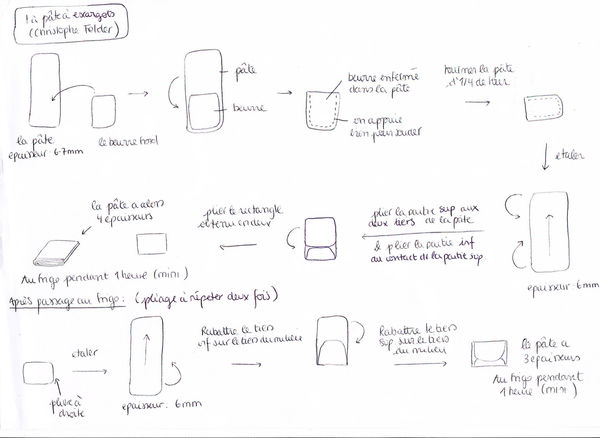 la pâte à escargots
(Christophe Felder)
pâte
beurre
la pâte
epaisseur 6-7mm
le beurre froid
beurre enfermé
dans la pâte
on appuie
bien pour souder
tourner la pâte
d'1/4 de tour
etaler
la pâte a alors
4 epaisseurs
plier le rectangle
obtenu en deux
plier la partie sup aux
deux tiers de la pâte
& plier la partie inf
au contact de la partie sup.
epaisseur: 6mm
Au frigo pendant 1 heure (mini)
Après passage au frigo: (pliage à répeter deux fois)
etaler
pliure à
droite
epaisseur: 6mm
Rabattre le tiers
inf sur le tiers du milieu
Rabattre le tiers
sup. sur le tiers
du milieu
la pâte a
3 epaisseurs
Au frigo pendant
1 heure (mini)